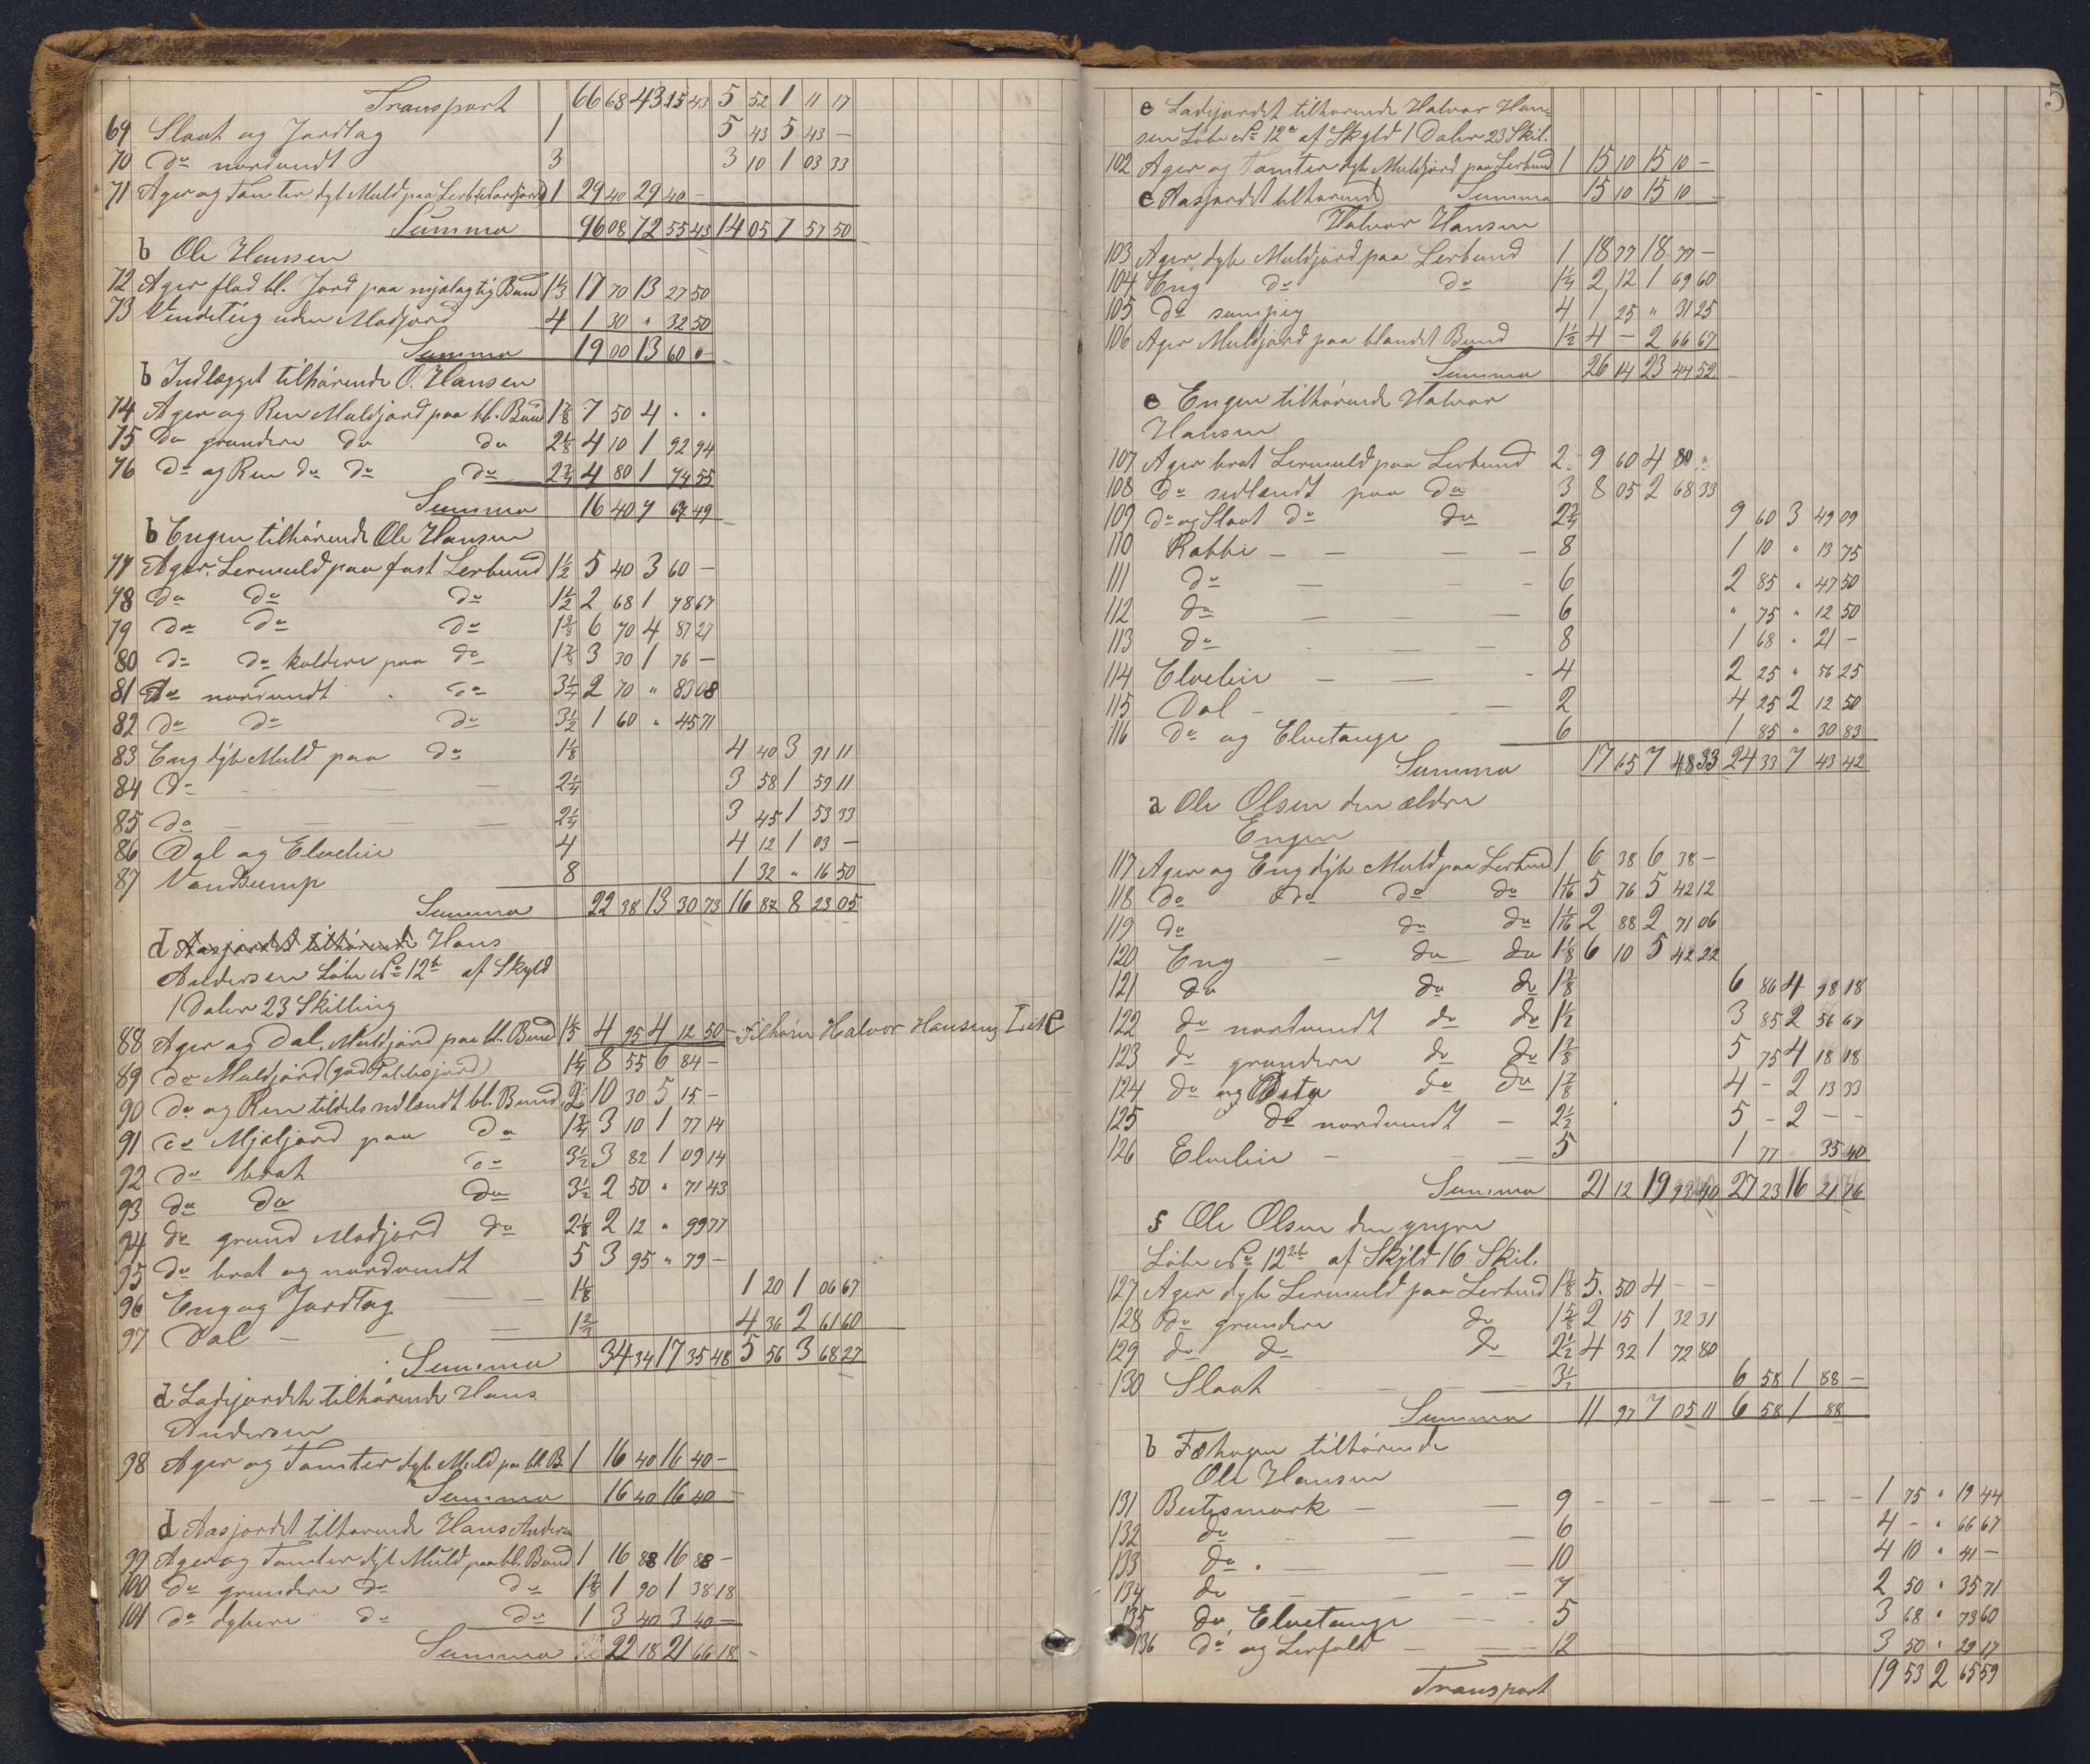 Transport 66 68 43 15 43 5 52 1 11 17
69 Slaat og Jordtag 1 5 43 5 43 –
70 do nordvendt 3 3 10 1 03 33
71 Ager og Tomter dyb Muld paa Lerb. 1 29 40 29 40 –
Summa 96 08 72 55 43 14 05 7 57 50
b Ole Hansen
72 Ager flad bl. Jord paa mjælagtig Bund 1⅓ 17 70 13 27 50
73 Vendeteig uden Madjord 4 1 30 " 32 50
Summa 19 00 13 60 0
b Indlægget tilhørende O. Hansen
74 Ager og Ren Muldjord paa bl. Bund 1⅞ 7 50 4 . .
75 do grundere do do 2⅛ 4 10 1 92 94
76 do og Ren do do do 2¾ 4 80 1 74 55
Summa 16 40 7 67 49
b Engen tilhørende Ole Hansen
77 Ager. Lermuld paa fast Lerbund 1½ 5 40 3 60 –
78 do do do 1½ 2 68 1 78 67
79 do do do 1⅜ 6 70 4 87 27
80 do do koldere paa do 1⅞ 3 30 1 76 –
81 do nordvendt . do 3¼ 2 70 " 83 08
82 do do do 3½ 1 60 " 45 71
83 Eng dyb Muld paa do 1⅛ 4 40 3 91 11
84 do – – 2¼ 3 58 1 59 11
85 do – – – – 2¼ 3 45 1 53 33
86 Dal og Elvelie 4 4 12 1 03 –
87 Vandsump 8 1 32 " 16 50
Summa 22 38 13 30 73 16 87 8 23 05
d Aasjordet tilhørende Hans
Andersen Løbe No 12b af Skyld
1 Daler 23 Skilling
88 Ager og Dal. Muldjord paa bl. Bund 1⅕ 4 95 4 12 50 – Tilhører Halvor Hansens Lit e
89 do Muldjord (god Potetesjord) 1¼ 8 55 6 84 –
90 do og Ren tildels sidlændt bl. Bund 2 10 30 5 15 –
91 do Mjæljord paa do 1¾ 3 10 1 77 14
92 do brat do 3½ 3 82 1 09 14
93 do do do 3½ 2 50 " 71 43
94 do grund Madjord do 2⅛ 2 12 " 99 77
95 do brat og nordvendt 5 3 95 " 79 –
96 Eng og Jordtag – – 1⅛ 1 20 1 06 67
97 Dal – – – 1⅔ 4 36 2 61 60
Summa 34 34 17 35 48 5 56 3 68 27
d Ladejordet tilhørende Hans
Andersen
98 Ager og Tomter dyb Muld paa bl. B. 1 16 40 16 40 –
Summa 16 40 16 40 –
d Aasjordet tilhørende Hans Andersen
99 Ager og Tomter dyb Muld paa bl. Bund 1 16 88 16 88 –
100 do grundere do do 1⅜ 1 90 1 38 18
101 do dybere do do 1 3 40 3 40 –
Summa 22 18 21 66 18 –
5
e Ladejordet tilhørende Halvor Han=
sen Løbe No 12a af Skyld 1 Daler 23 Skil.
102 Ager og Tomter dyb Muldjord paa Lerbund 1 15 10 15 10 –
e Aasjordet tilhørende Summa 15 10 15 10 –
Halvor Hansen
103 Ager dyb Muldjord paa Lerbund 1 18 77 18 77 –
104 Eng do do 1¼ 2 12 1 69 60
105 do sumpig 4 1 25 " 31 25
106 Ager Muldjord paa blandet Bund 1½ 4 – 2 66 67
Summa 26 14 23 44 52
e Engen tilhørende Halvor
Hansen
107 Ager brat Lermuld paa Lerbund 2 9 60 4 80 "
108 do sidlændt paa do 3 8 05 2 68 33
109 do og Slaat do do 2¾ 9 60 3 49 09
110 Rabbe – – – – 8 1 10 " 13 75
111 do – – 6 2 85 " 47 50
112 do – – – 6 " 75 " 12 50
113 do – – – 8 1 68 " 21 –
114 Elvelie – – – 4 2 25 " 56 25
115 Dal – – – 2 4 25 2 12 50
116 do og Elvetange 6 1 85 " 30 83
Summa 17 65 7 48 33 24 33 7 43 42
a Ole Olsen den ældre
Engen
117 Ager og Eng dyb Muld paa Lerbund 1 6 38 6 38 –
118 do do do do 1 1/16 5 76 5 42 12
119 do do do 1 1/16 2 88 2 71 06
120 Eng – do do 1⅛ 6 10 5 42 22
121 do do do 1⅜ 6 86 4 98 18
122 do nordvendt do do 1½ 3 85 2 56 67
123 do grundere do do 1⅜ 5 75 4 18 18
124 do og do do 1⅞ 4 – 2 13 33
125 do nordvendt – 2½ 5 – 2 – –
126 Elvelie – – 5 1 77 " 35 40
Summa 21 12 19 93 40 27 23 16 21 76
f Ole Olsen den yngre
Løbe No 12 2b af Skyld 16 Skil.
127 Ager dyb Lermuld paa Lerbund 1⅜ 5 50 4 – –
128 do grundere do 1⅝ 2 15 1 32 31
129 do do do 2½ 4 32 1 72 80
130 Slaat – – – 3½ 6 58 1 88 –
Summa 11 97 7 05 11 6 58 1 88
b Fæhagen tilhørende
Ole Hansen
131 Beitesmark – – 9 – – – – – – 1 75 " 19 44
132 do – – 6 4 – " 66 67
133 do . – – 10 4 10 " 41 –
134 do – – – 7 2 50 " 35 71
135 do, Elvetange – – 5 3 68 " 73 60
136 do og Lerfald – – 12 3 50 " 29 17
Transport 19 53 2 65 59